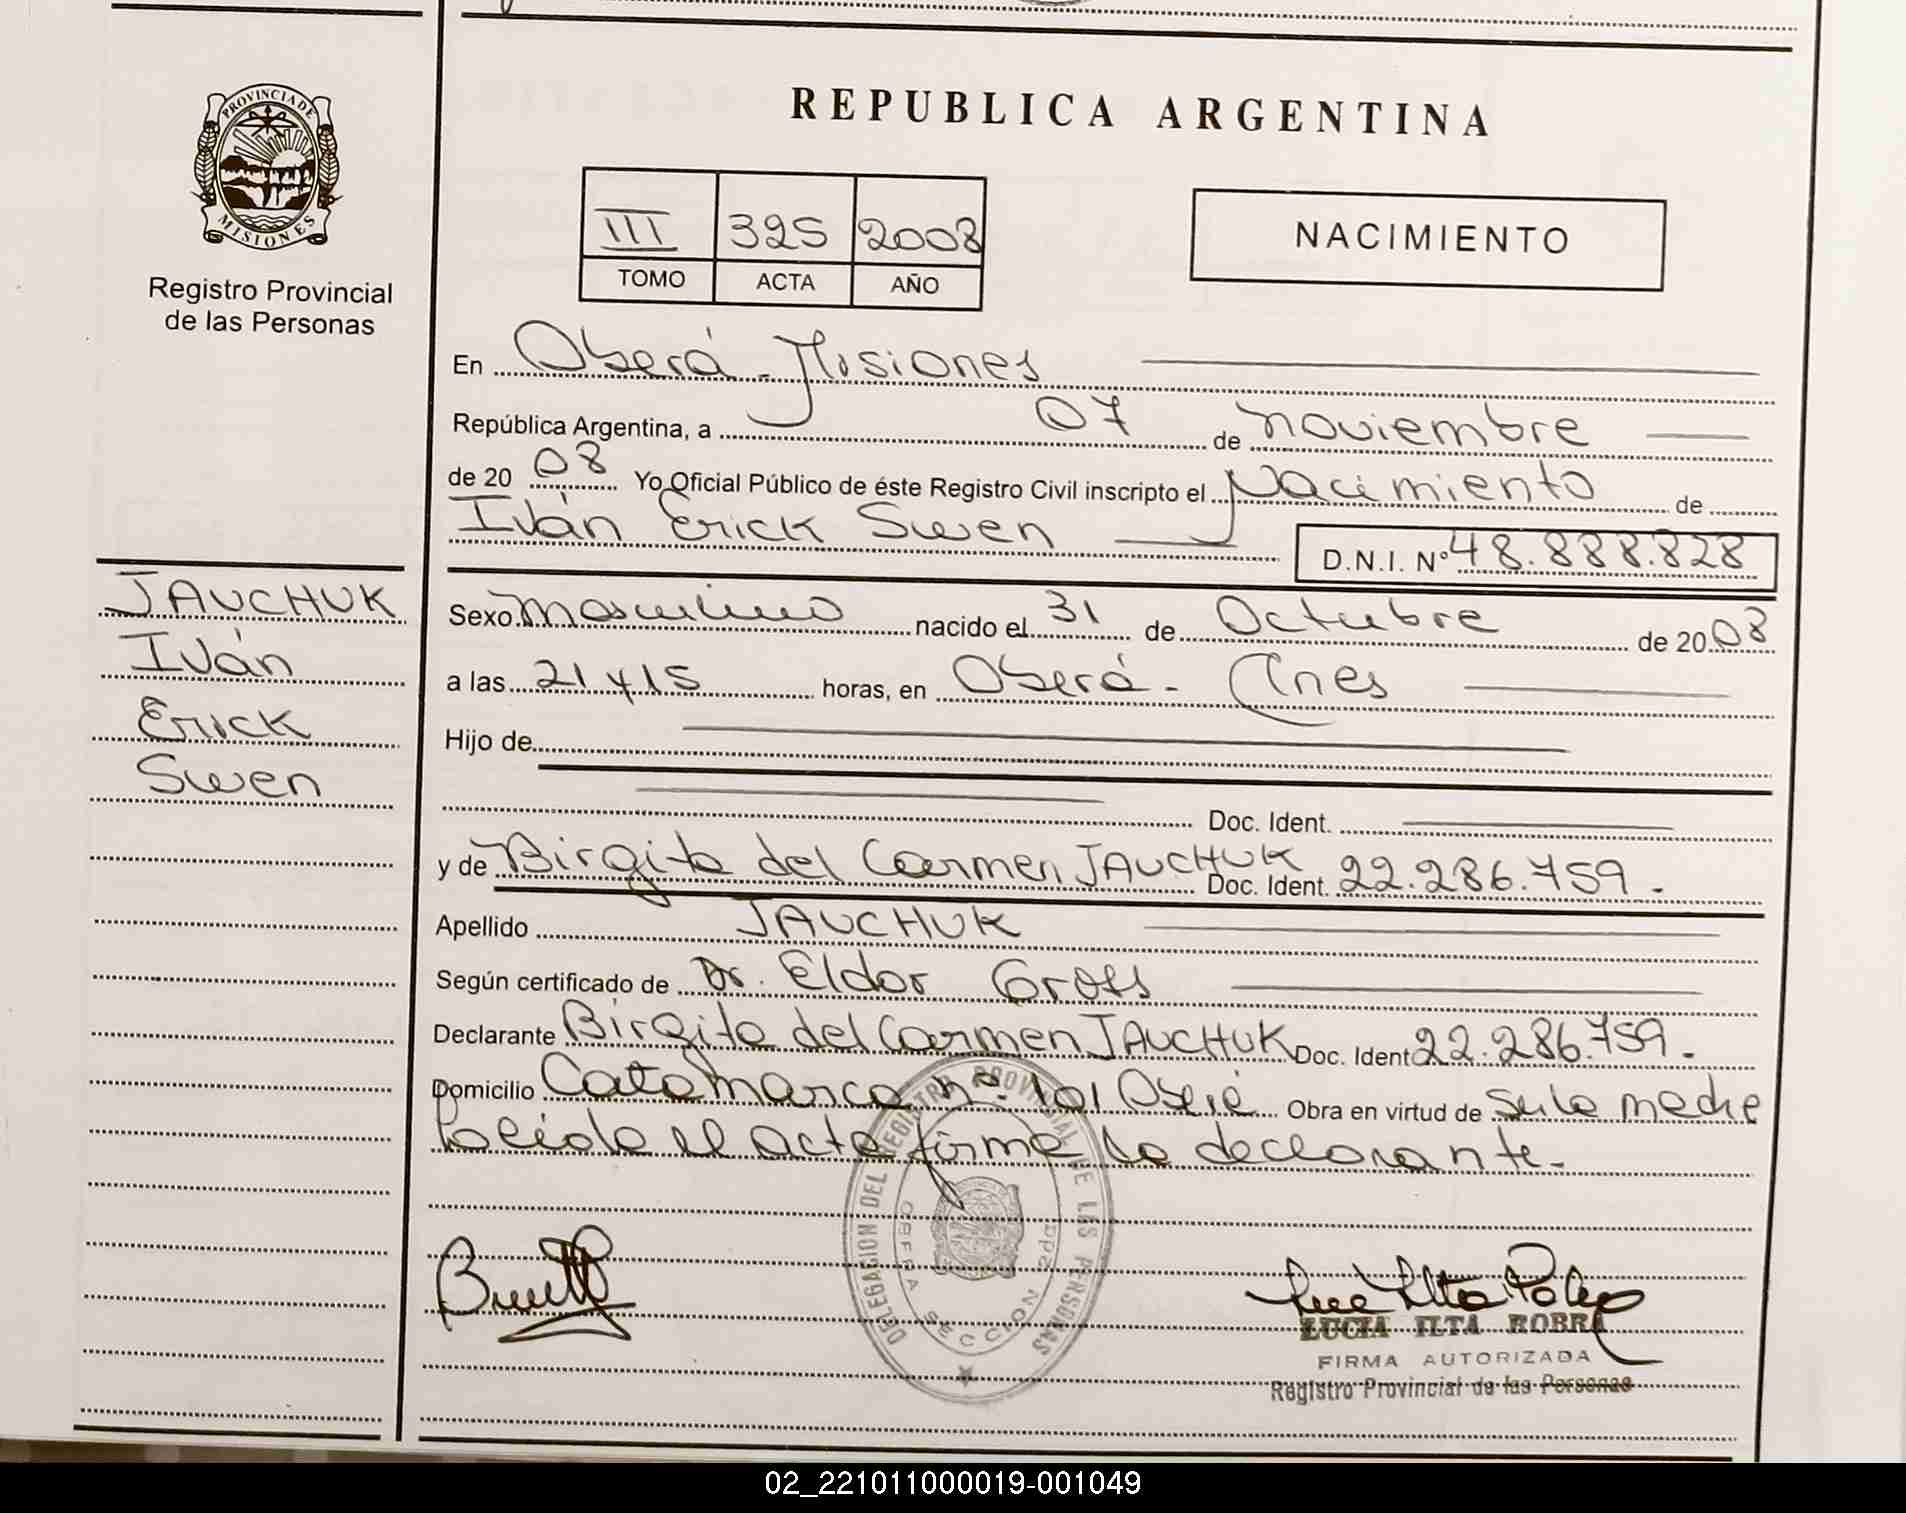 REPUBLICA ARGENTINA
PROVINCIA DE
MISIONES
Registro Provincial
de las Personas
III 325 2008
TOMO ACTA AÑO
NACIMIENTO
En Oberá - Misiones
República Argentina, a 07 de noviembre
de 20 08 Yo Oficial Público de éste Registro Civil inscripto el Nacimiento de
Iván Erick Swen D.N.I. Nº 48.888.828
JAUCHUK
Iván
Erick
Swen
Sexo Masculino nacido el 31 de Octubre de 20 08
a las 21 y 15 horas, en Oberá - Mnes
Hijo de
Doc. Ident.
y de Birgita del Carmen JAUCHUK Doc. Ident. 22.286.759.
Apellido JAUCHUK
Según certificado de Dr. Eldor
Declarante Birgita del Carmen JAUCHUK Doc. Ident 22.286.759.
Domicilio Catamarca nº. 101 Oberá Obra en virtud de ser la madre
leída el acta firma la declarante.
DELEGACION DEL REGISTRO PROVINCIAL DE LAS PERSONAS
OBERA SECCION 2da
LUCIA ILTA ROBRA
FIRMA AUTORIZADA
Registro Provincial de las Personas
02_221011000019-001049